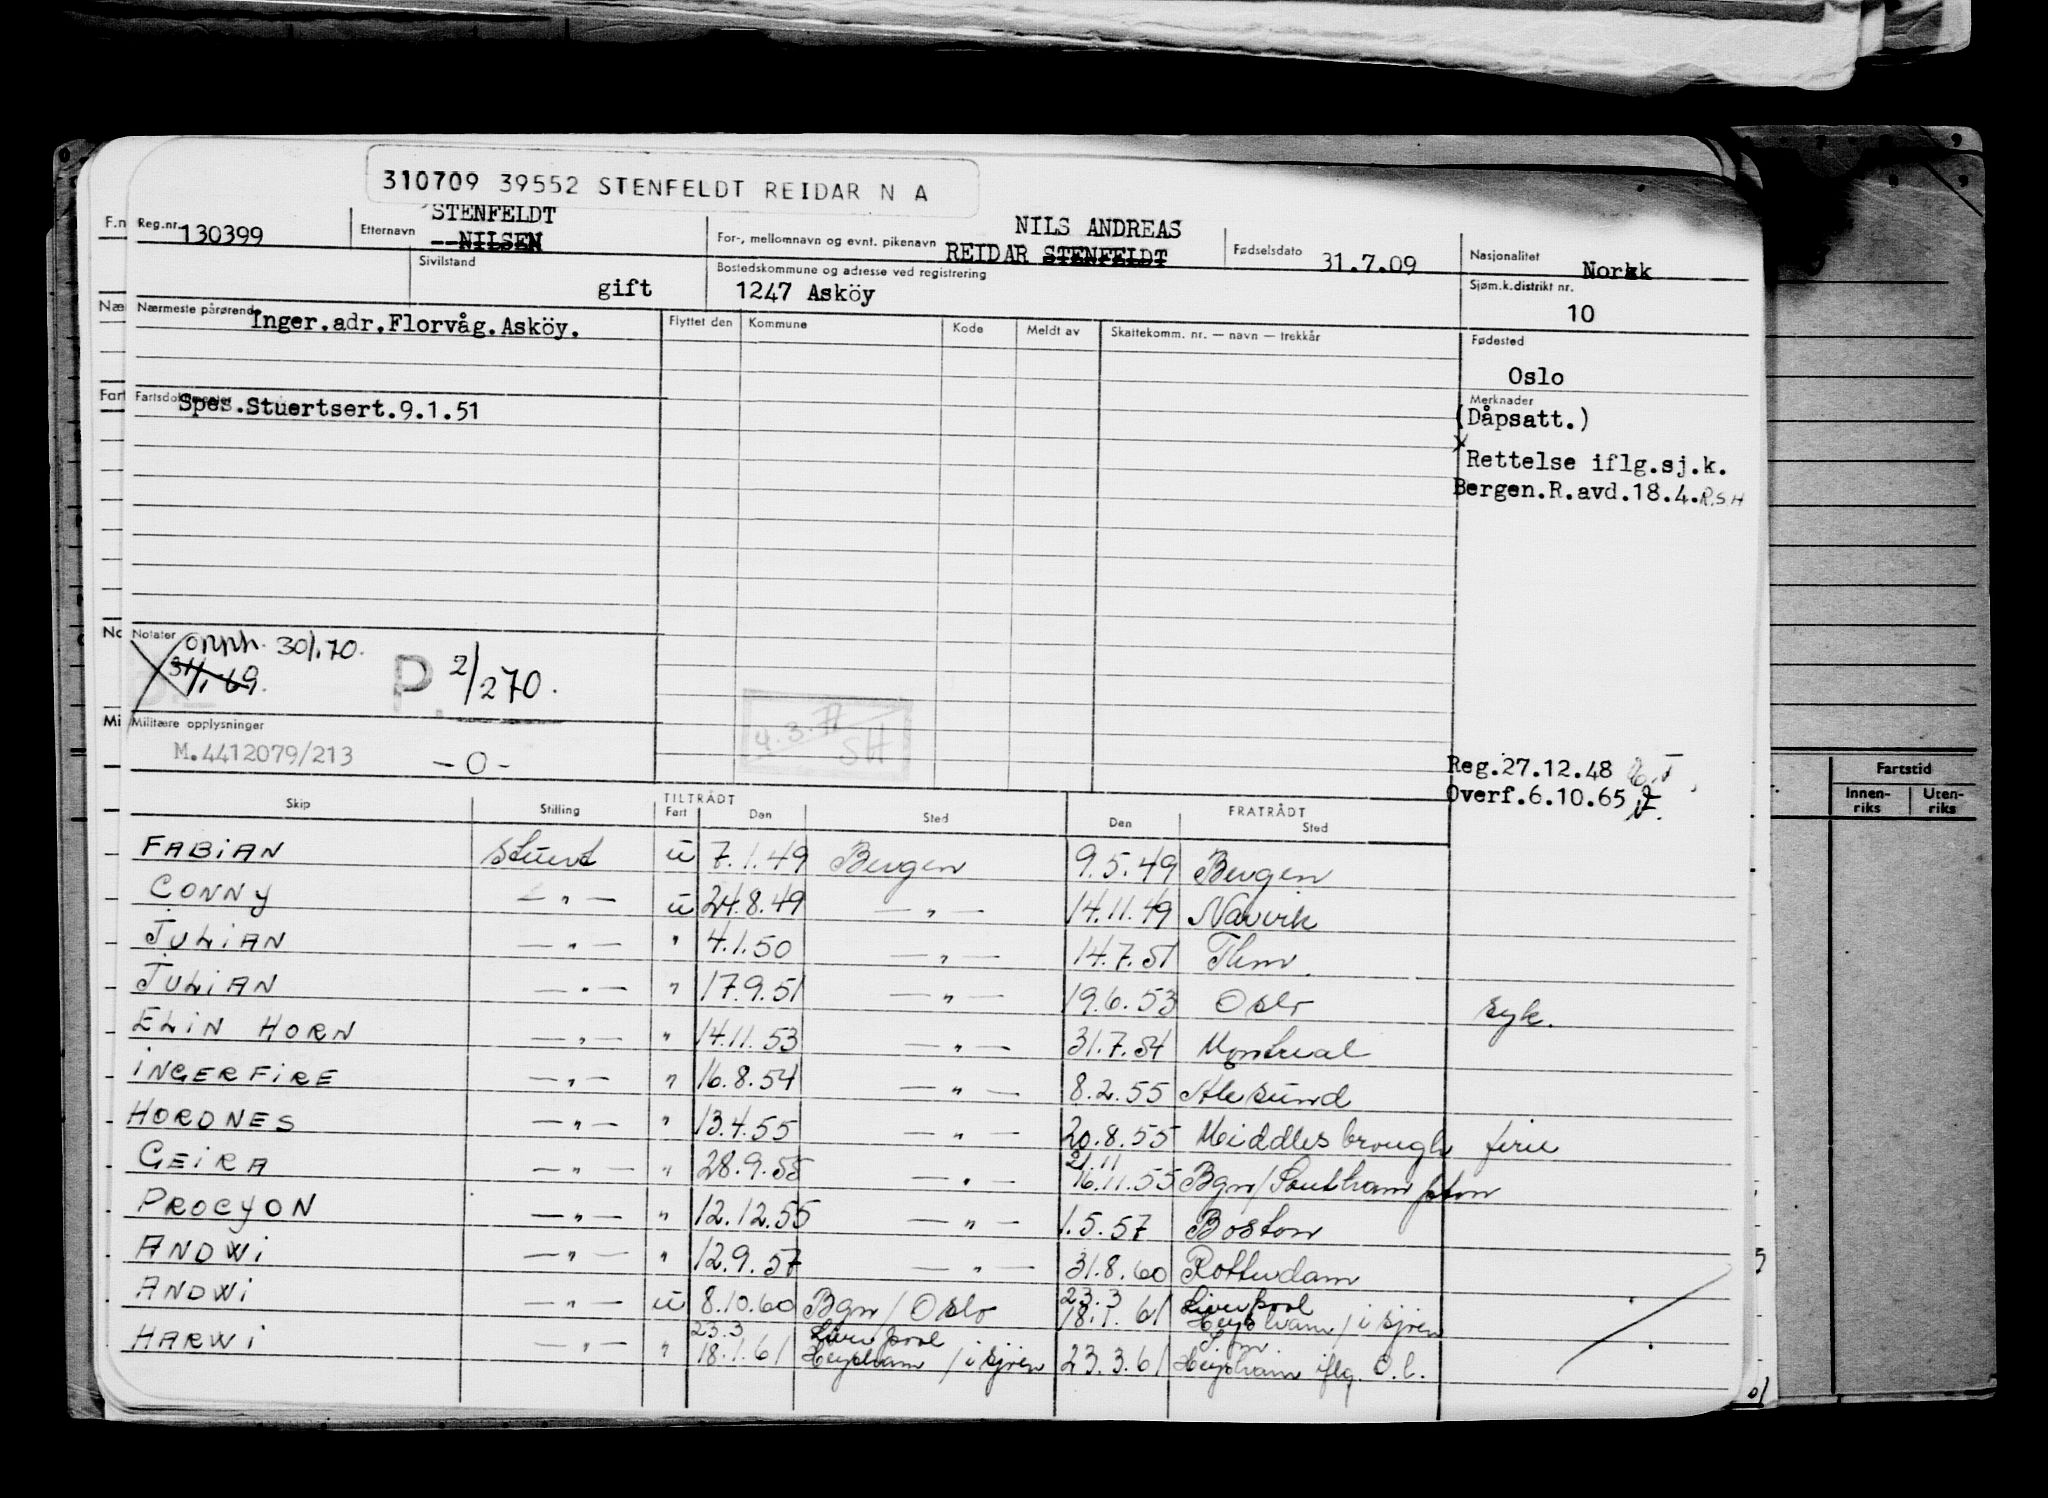 310709 39552 STENFELDT REIDAR N A
F.n Reg.nr. 130399 Etternavn STENFELDT --NILSEN For-, mellomnavn og evnt. pikenavn NILS ANDREAS REIDAR STENFELDT Fødselsdato 31.7.09 Nasjonalitet Norsk
Sivilstand gift Bostedskommune og adresse ved registrering 1247 Asköy Sjøm.k.distrikt nr. 10
Næ Nærmeste pårørende Inger.adr.Florvåg.Asköy. Flyttet den Kommune Kode Meldt av Skattekomm. nr. — navn — trekkår Fødested
Oslo
Fart Fartsdokumenter Spes.Stuertsert.9.1.51 Merknader
(Dåpsatt.)
x
Rettelse iflg.sj.k.
Bergen.R.avd.18.4. R.S.H
No Notater opph. 30/1.70.
31/1-69. P. 2/270.
4.3.71 SH
Mi Militære opplysninger
M.4412079/213 -0-
Reg.27.12.48
Overf.6.10.65
Fartstid
Innen-riks Uten-riks
TILTRÅDT FRATRÅDT
Skip Stilling Fart Den Sted Den Sted
FABIAN Stuert u 7.1.49 Bergen 9.5.49 Bergen
CONNY — " — u 24.8.49 — " — 14.11.49 Narvik
JULIAN — " — " 4.1.50 — " — 14.7.51 Thm.
JULIAN — " — " 17.9.51 — " — 19.6.53 Oslo syk.
ELIN HORN — " — " 14.11.53 — " — 31.7.54 Montreal
INGERFIRE — " — " 16.8.54 — " — 8.2.55 Alesund
HORDNES — " — " 13.4.55 — " — 20.8.55 Middlesbrough ferie
GEIRA — " — " 28.9.55 — " — 21.11 16.11.55 Bgn/Southampton
PROCYON — " — " 12.12.55 — " — 1.5.57 Boston
ANDWI — " — " 12.9.57 — " — 31.8.60 Rotterdam
ANDWI — " — u 8.10.60 Bgn/Oslo 23.3 18.1.61 Liverpool Heysham/i sjøen
HARWI — " — " 23.3 18.1.61 Liverpool Heysham/i sjøen 23.3.61 Heysham iflg. O.l.